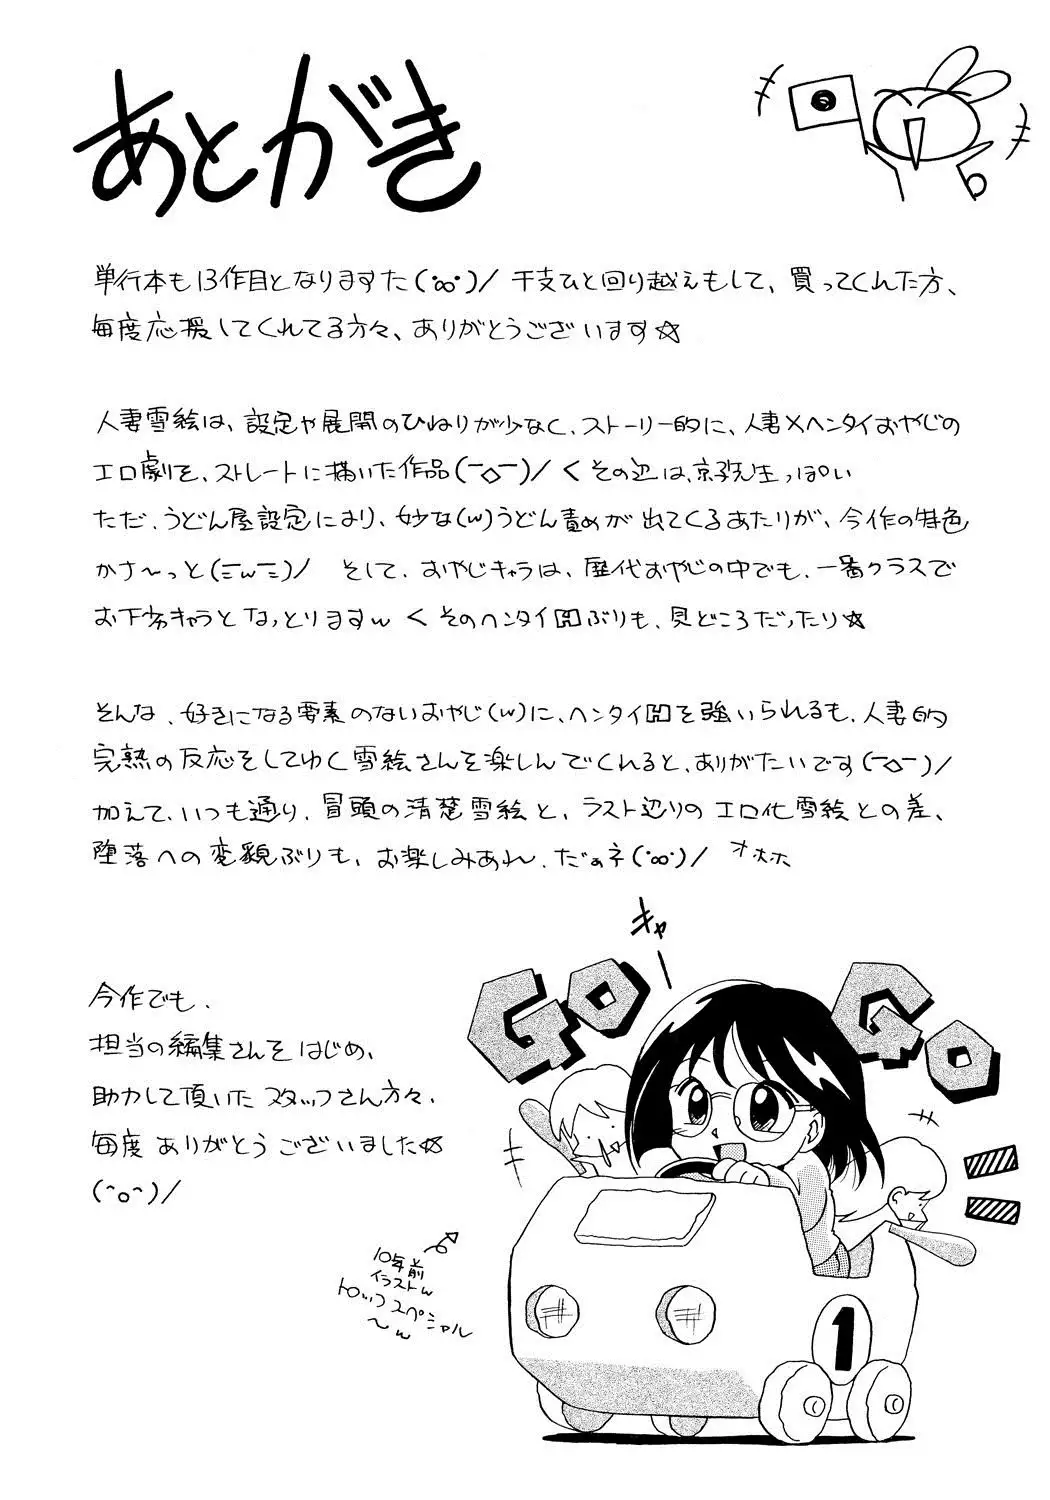 あとがき
単行本も13作目となりますた(・ω・)/ 干支ひと回り越えもして、買ってくんた方、
毎度応援してくれてる方々、ありがとうございます☆
人妻雪絵は、設定や展開のひねりが少なく、ストーリー的に、人妻×ヘンタイおやじの
エロ劇を、ストレートに描いた作品(￣◇￣)/ くその辺は、京子先生っぽい
ただ、うどん屋設定により、妙な(w)うどん責めが出てくるあたりが、今作の特色
かさ～っと(ニwニ)/ そして、おやじキャラは、歴代おやじの中でも、一番クラスで
お下劣キャラとなっとりますw くそのヘンタイHぶりも、見どころだったり☆
そんな、好きになる要素のないおやじ(w)に、ヘンタイHを強いられるも、人妻的
完熟の反応をしてゆく雪絵さんを楽しんでくれると、ありがたいです(￣◇￣)/
加えて、いつも通り、冒頭の清楚雪絵と、ラスト辺りのエロ化雪絵との差、
堕落への変貌ぶりも、お楽しみあれ、だぁネ(・ω・)/ オホホ
キャー
GO GO
今作でも、
担当の編集さんをはじめ、
助力して頂いたスタッフさん方々、
毎度ありがとうございました☆
(^o^)/
10年前
イラストw
トップスペシャル
～w
1